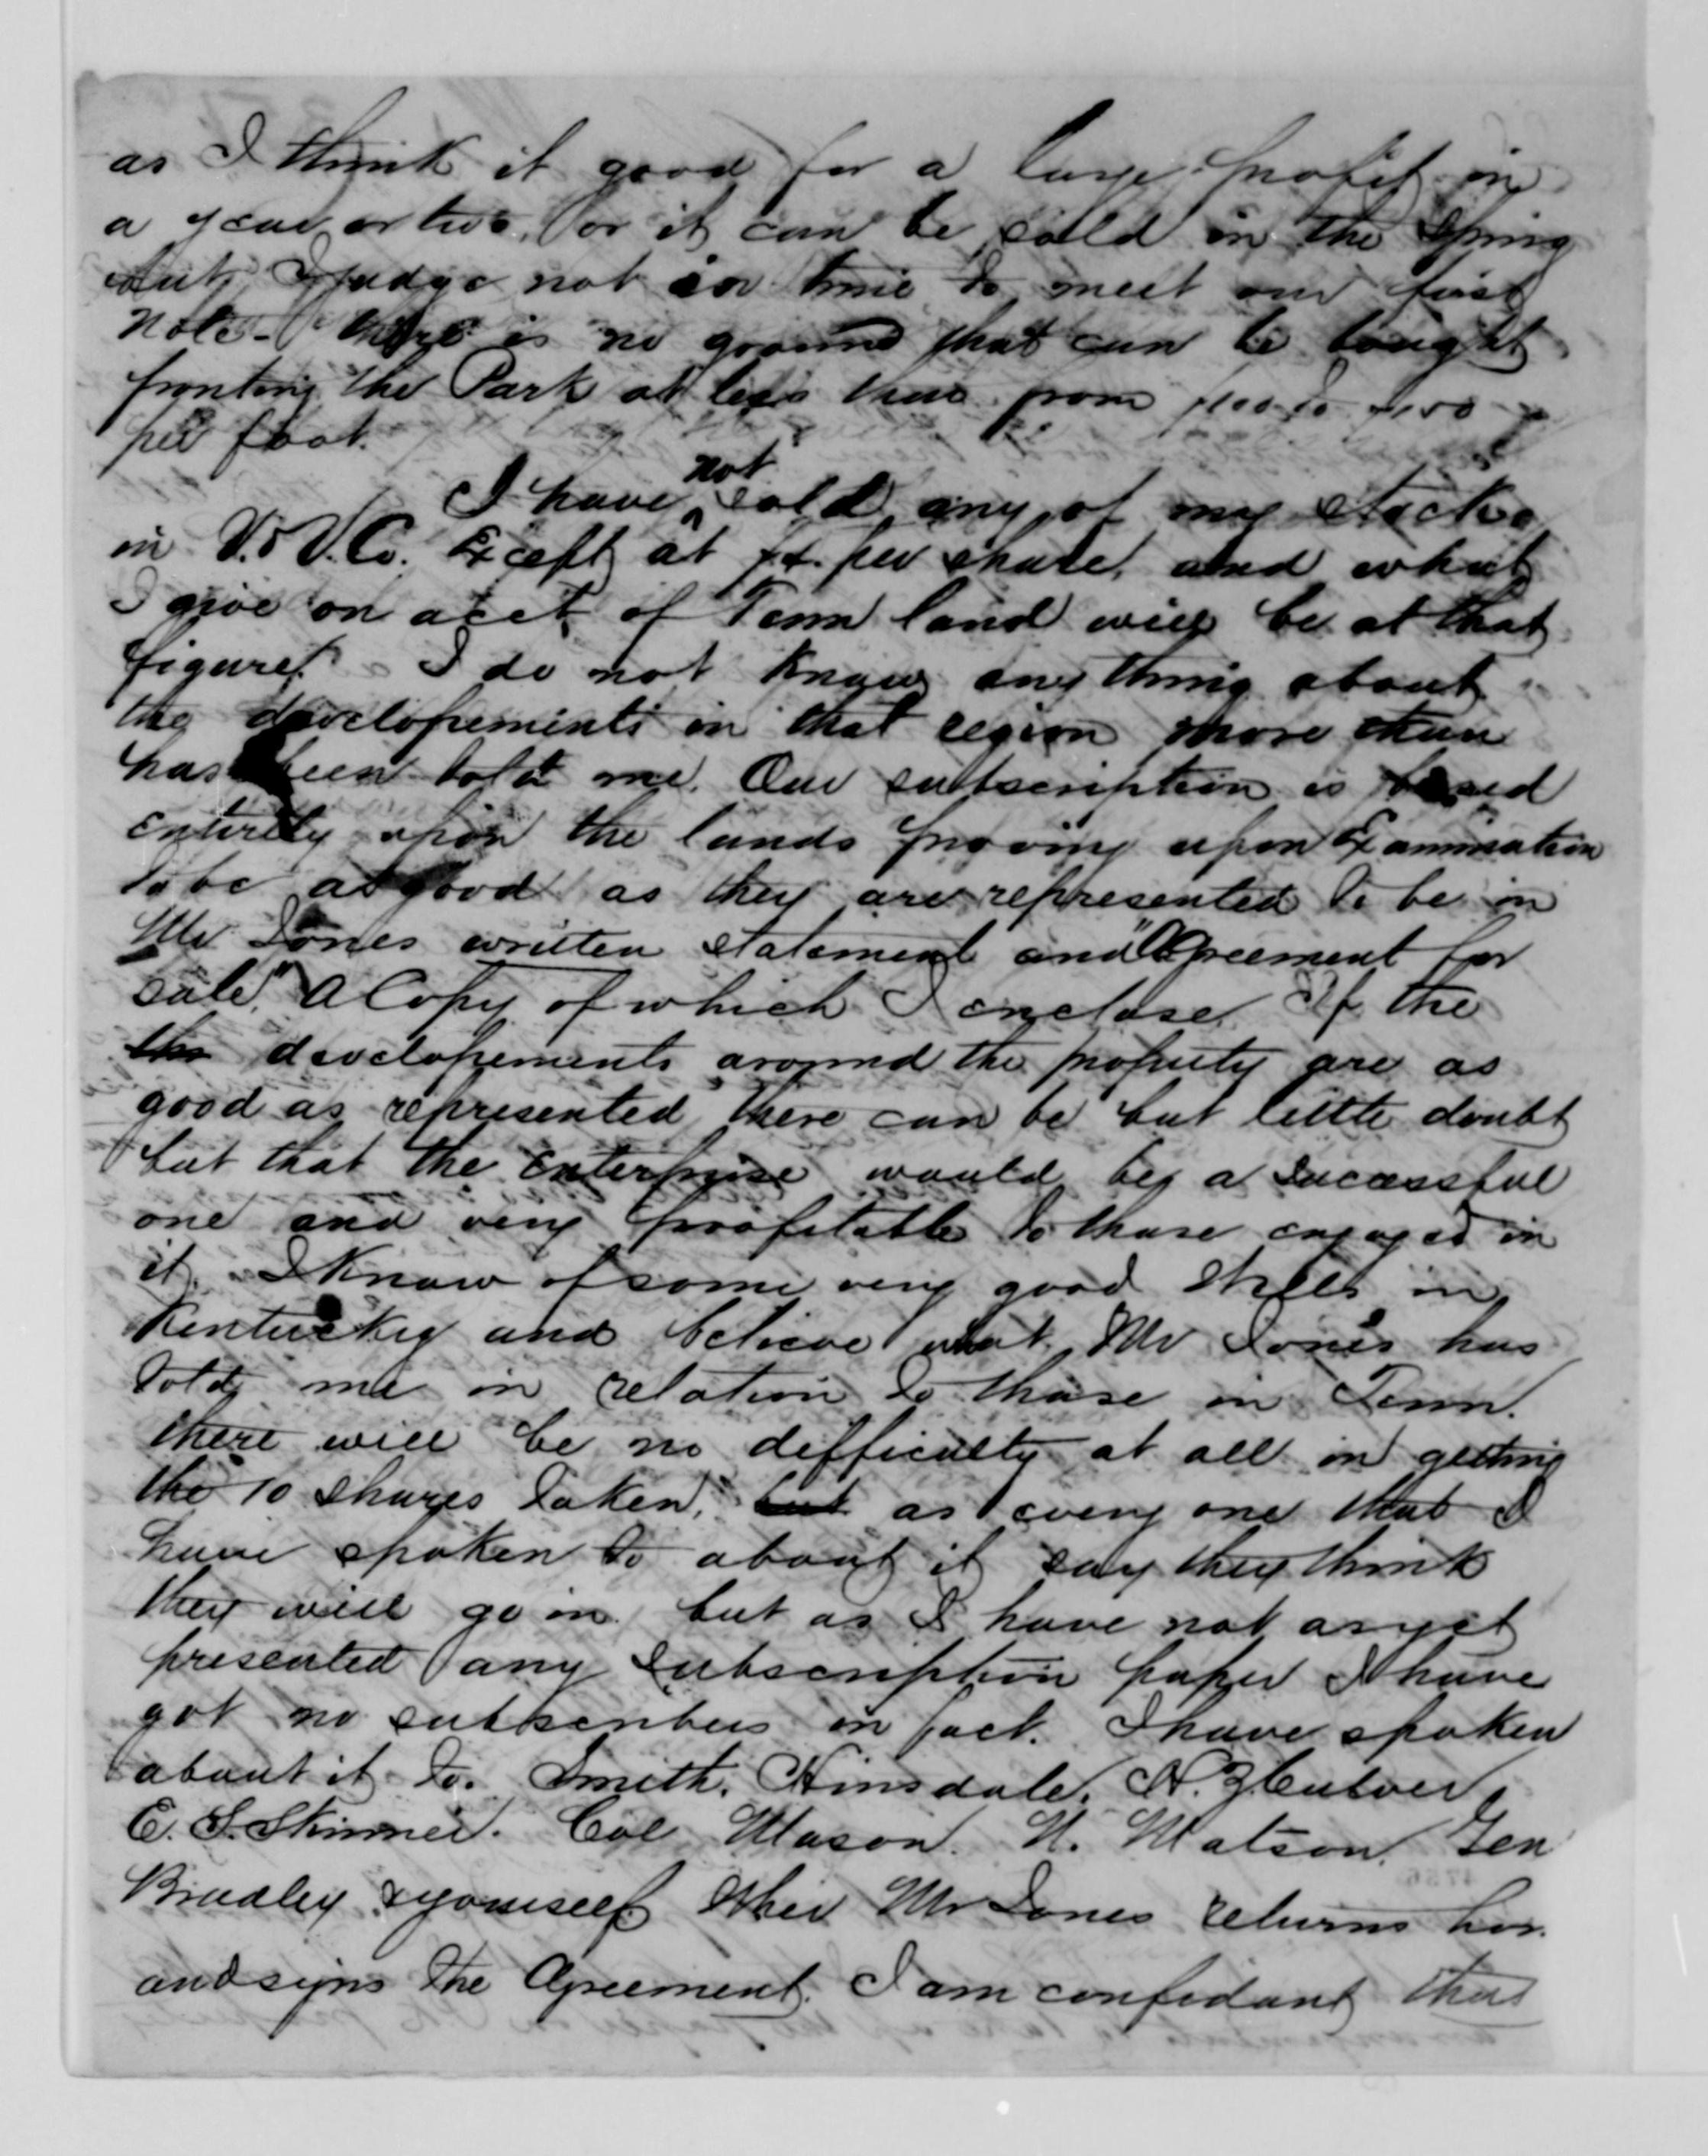 as I think it good for a large profit in
a year or two, or it can be sold in the Spring
but I judge not in time to meet our first
note - there is no ground that can be bought
fronting the Park at less than from $100 to
per foot.
I have not sold any of my stock
in V. & V. Co. Except at per share, and what
I give on acct of Tenn land will be at that
figure. I do not know any thing about
the developements in that region more than
has been told me. Our subscription is based
entirely upon the lands proving upon Examination
to be as good as they are represented to be in
Mr Jones written statement and "Agreement for
sale," A Copy of which I enclose. If the
the developements around the property are as
good as represented there can be but little doubt
but that the enterprise would be a sucessful
one and very profitable to those engaged in
it. I know of some very good wells in
Kentuckey and believe what Mr Jones has
told me in relation to those in Tenn.
there will be no difficulty at all in getting
the 10 shares taken, but as every one that I
have spoken to about it say they think
they will go in. but as I have not as yet
presented any subscription paper I have
got no subscribers in fact. I have spoken
about it to. Smith, Hinsdale, Culver,
E. S. Skinner. Col Mason. N. Matson, Gen
Bradley & yourself When Mr Jones returns
and signs the Agreement. I am confidant that